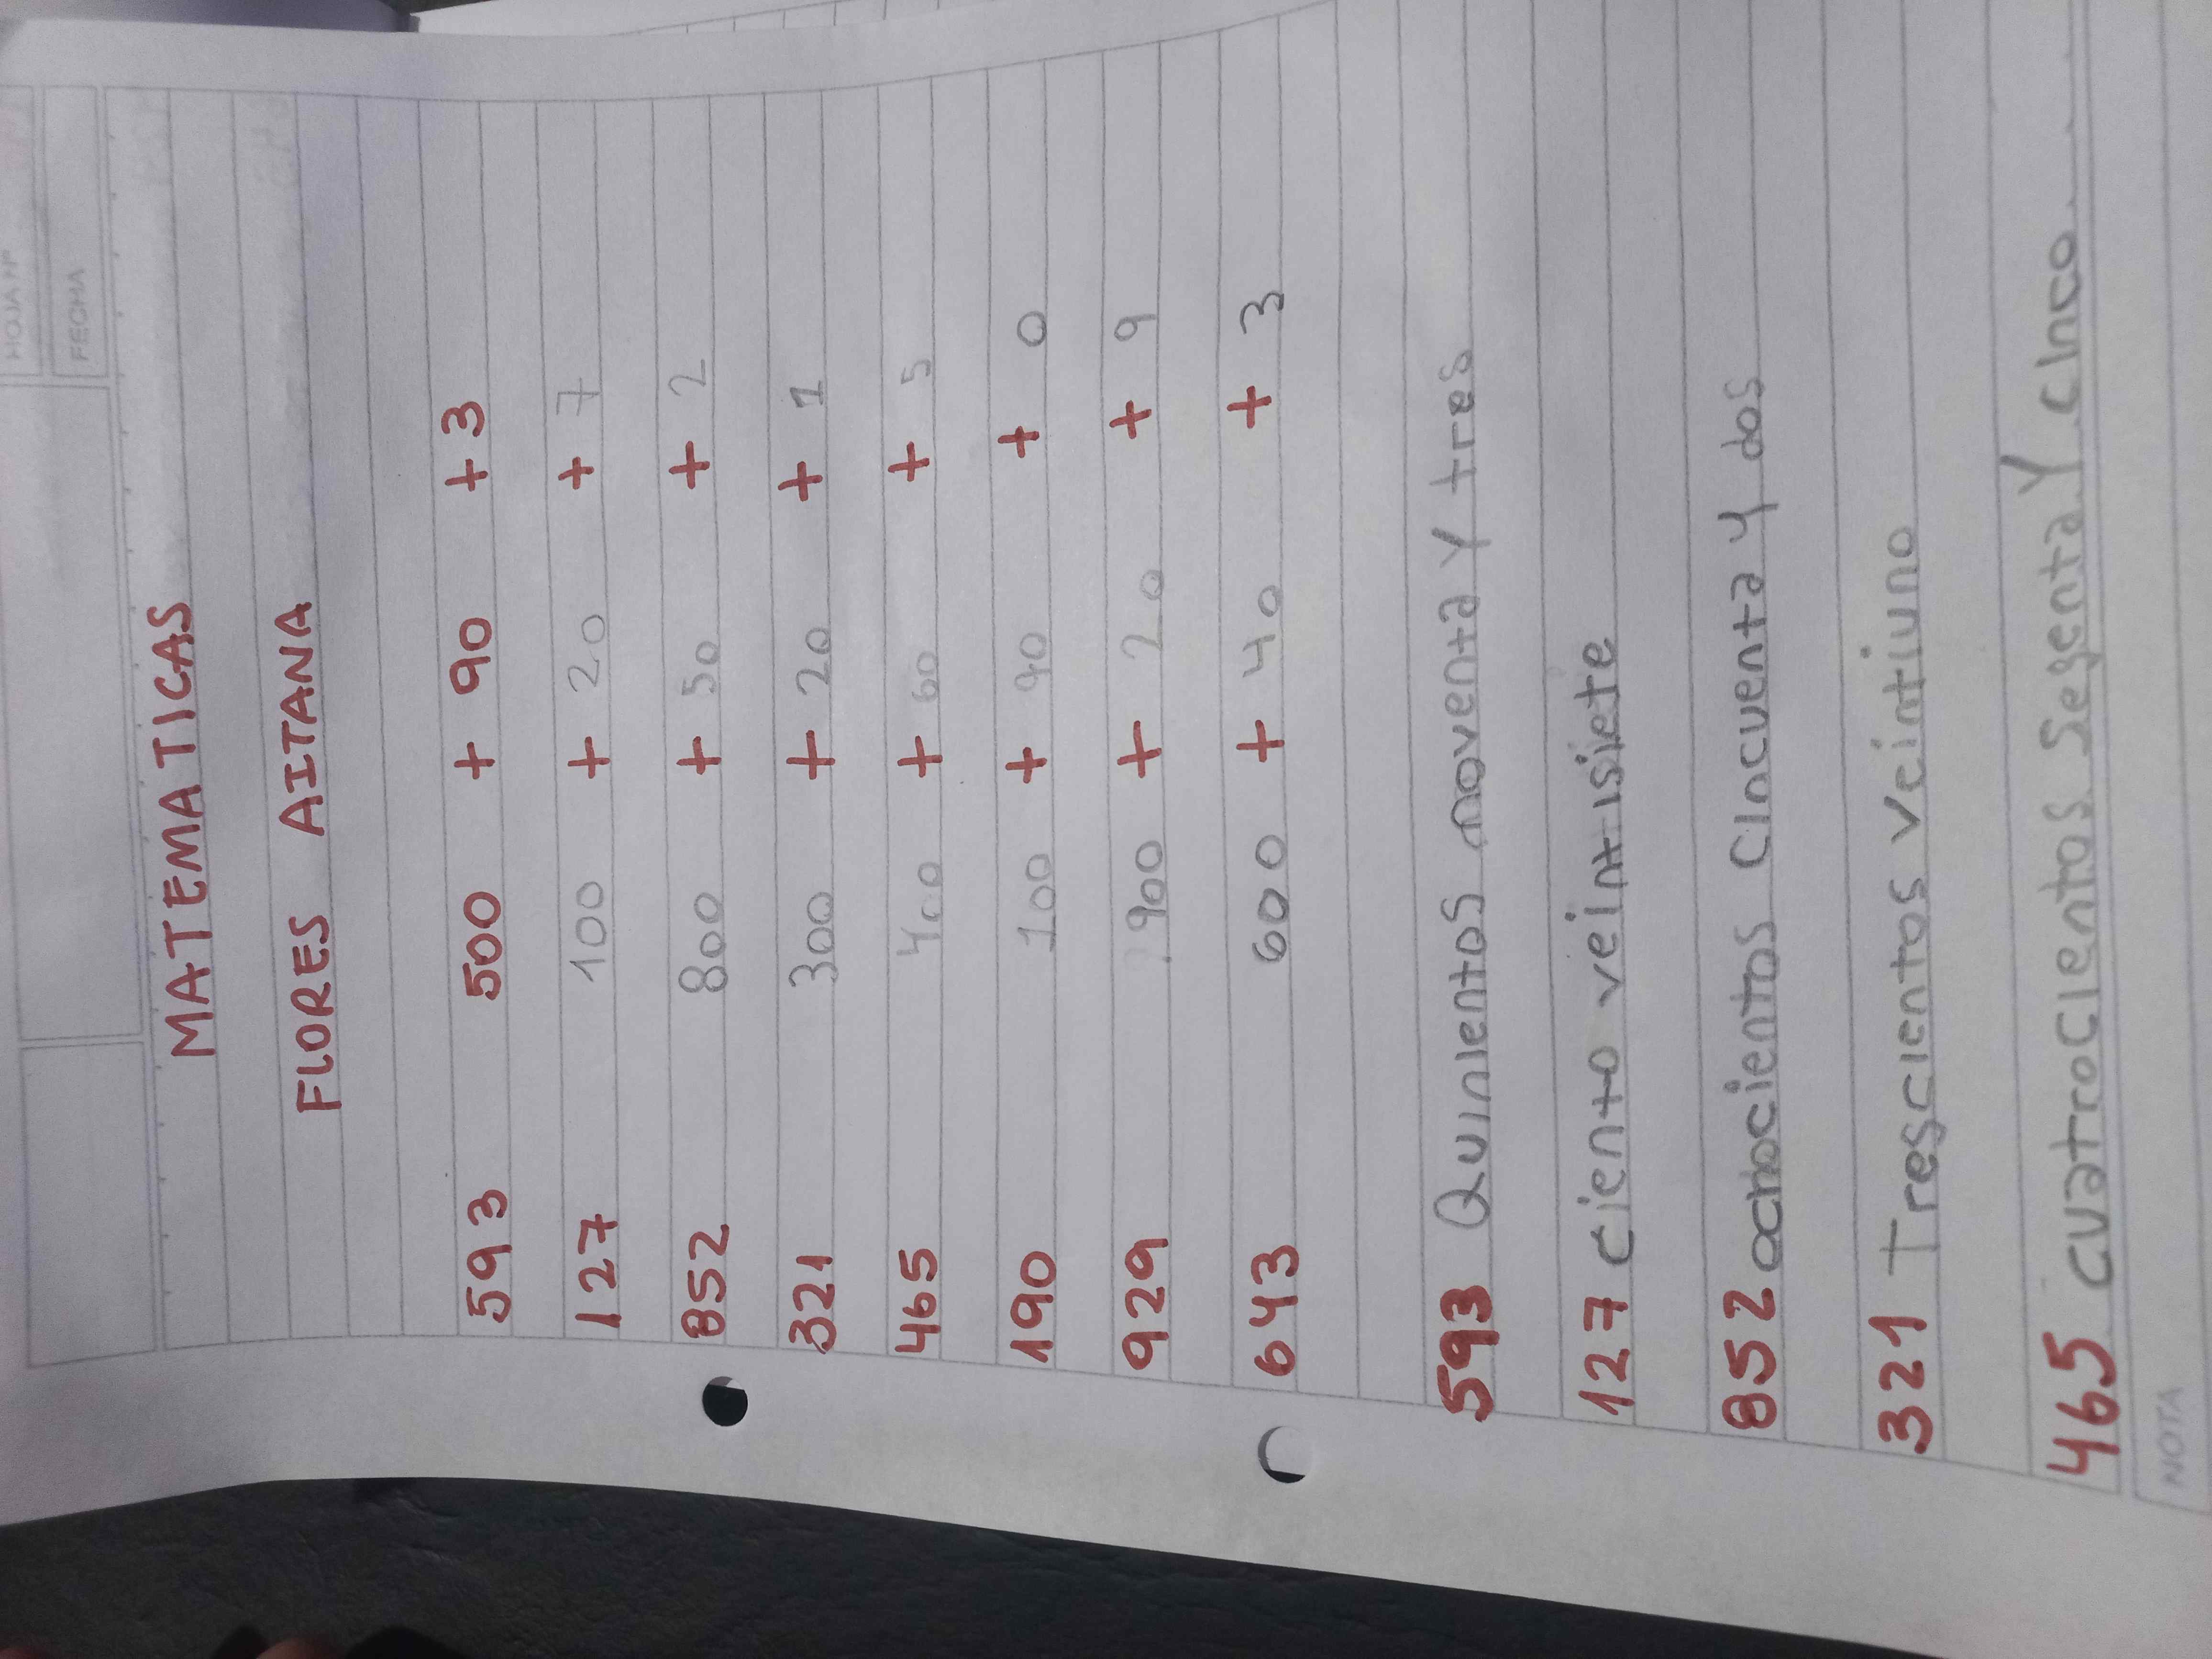 HOJA Nº
FECHA
MATEMATICAS
FLORES AITANA
593 500 + 90 + 3
127 100 + 20 + 7
852 800 + 50 + 2
321 300 + 20 + 1
465 400 + 60 + 5
190 100 + 90 + 0
929 900 + 20 + 9
643 600 + 40 + 3
593 Quinientos noventa y tres
127 ciento veintisiete
852 ochocientos cincuenta y dos
321 Trescientos veintiuno
465 cuatrocientos Segenta y cinco
NOTA